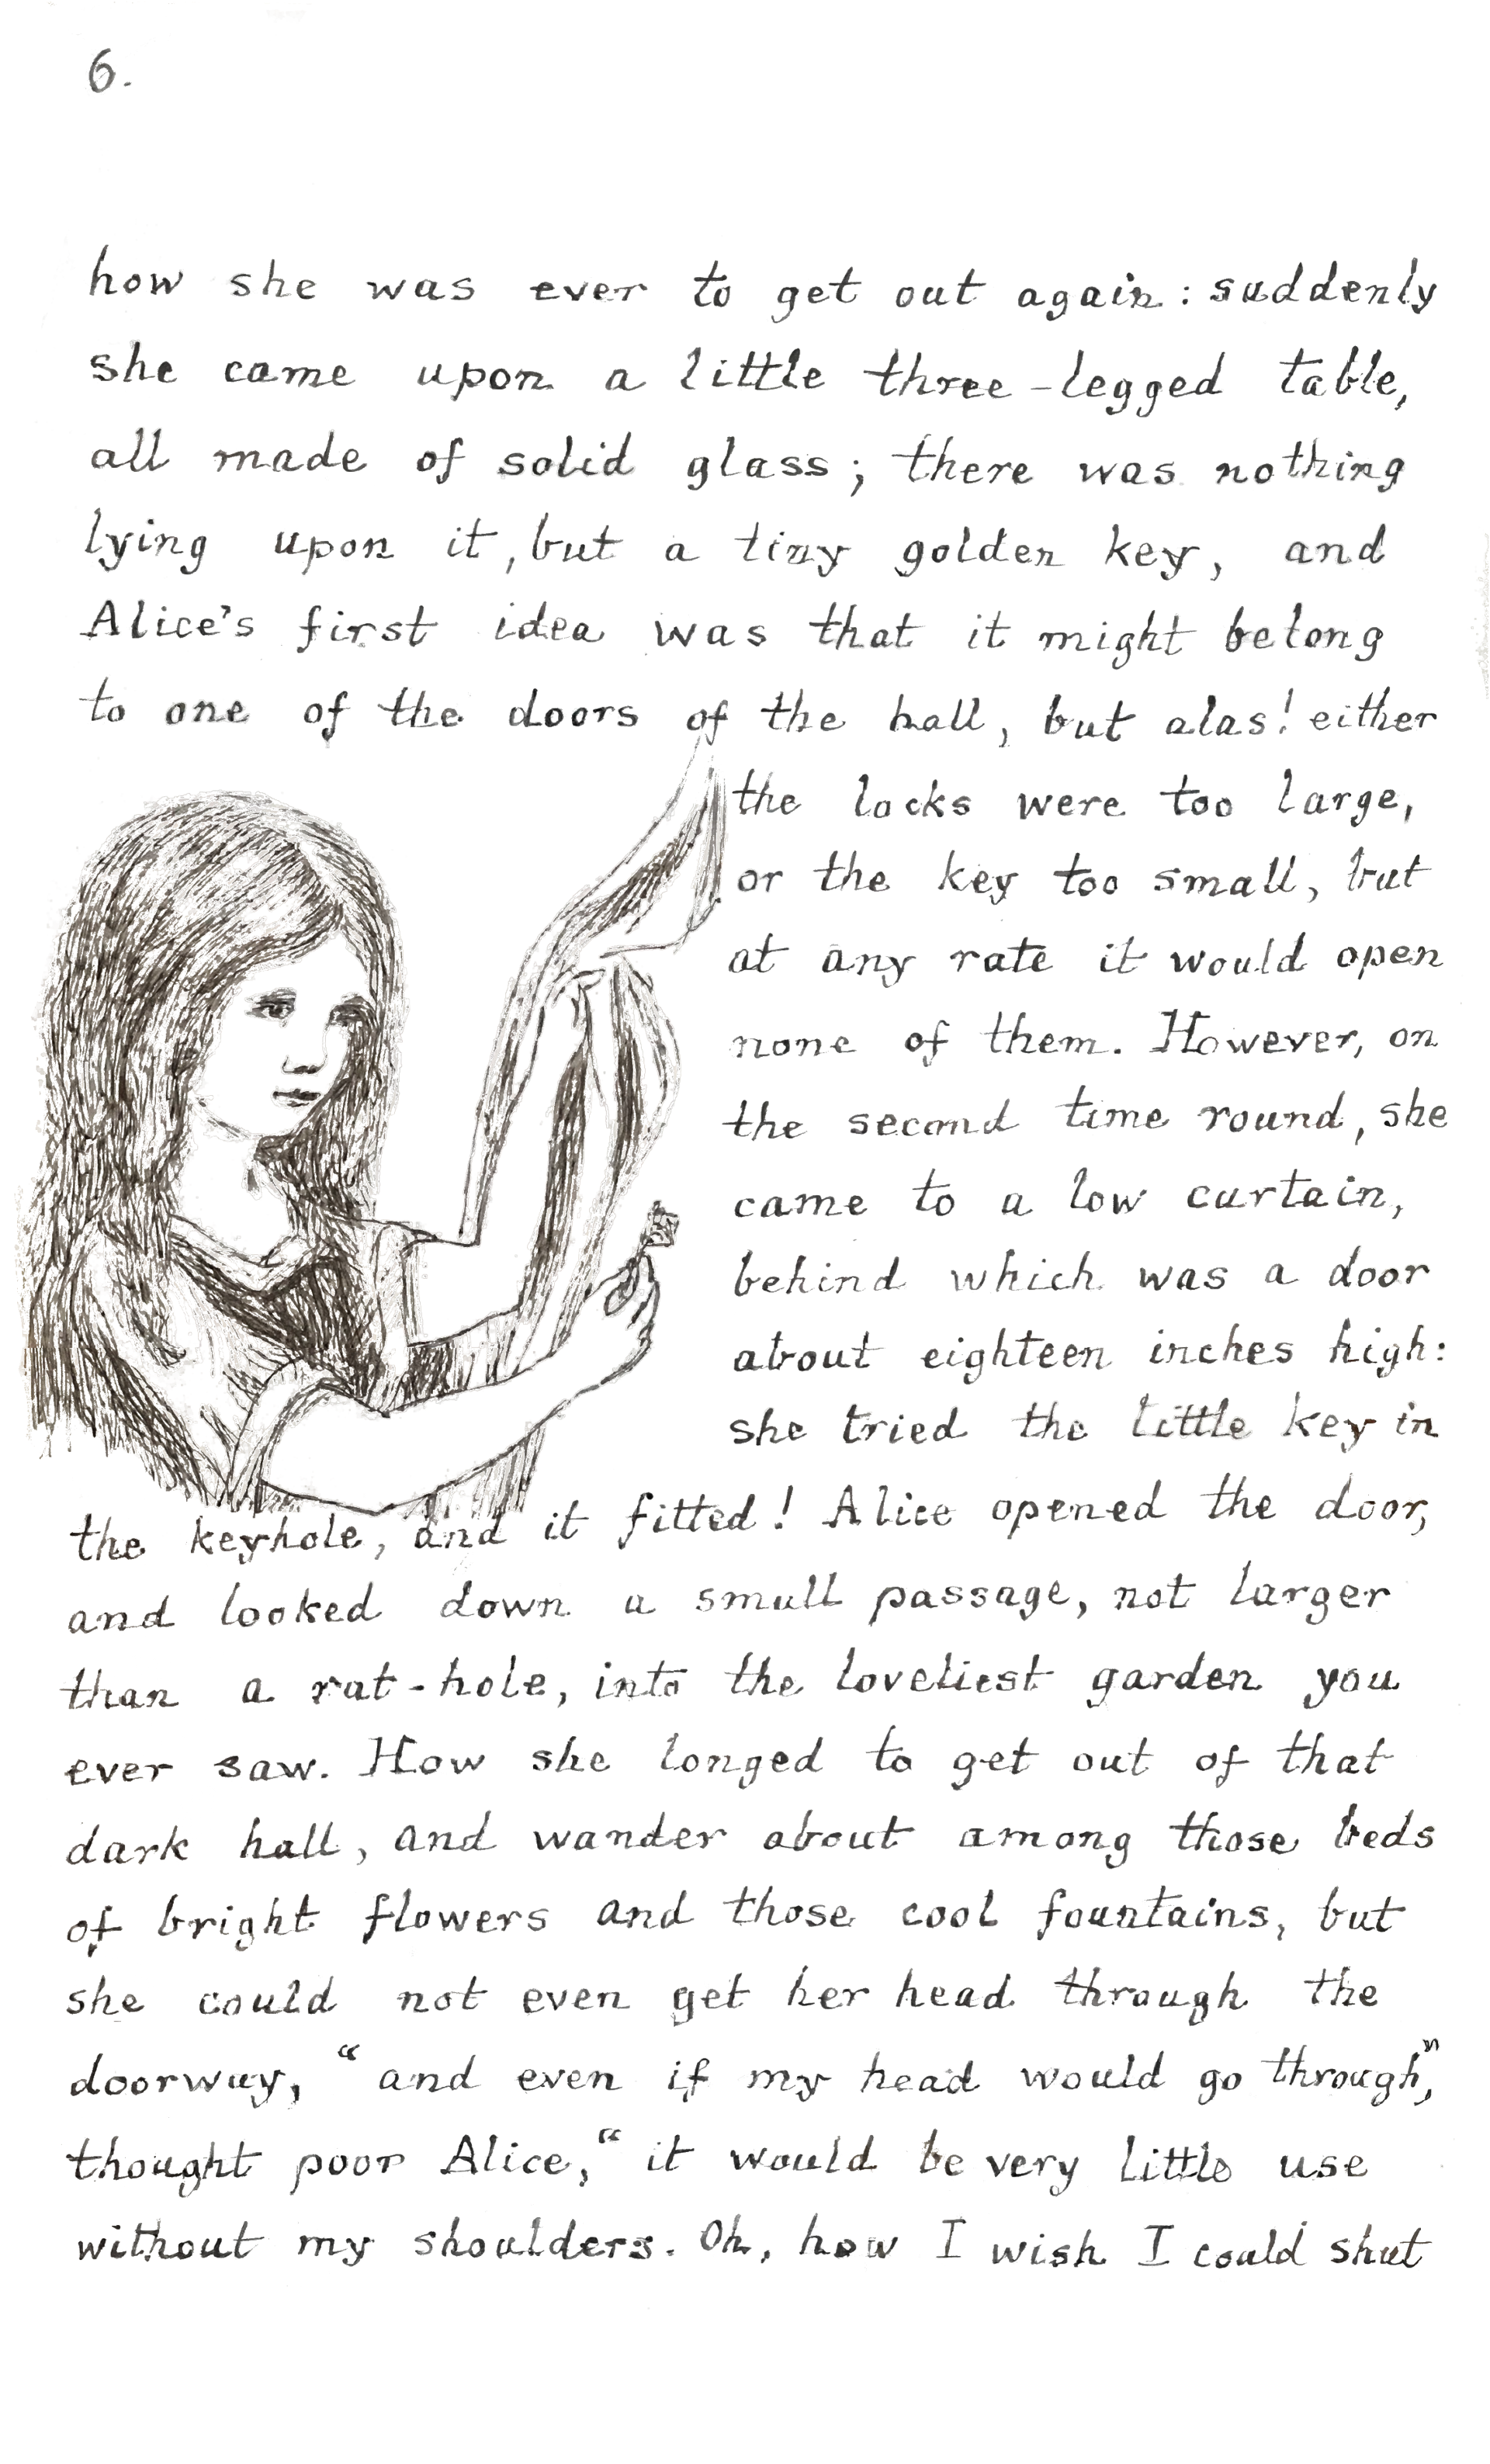 6.
how she was ever to get out again: suddenly
she came upon a little three-legged table,
all made of solid glass; there was nothing
lying upon it, but a tiny golden key, and
Alice's first idea was that it might belong
to one of the doors of the hall, but alas! either
the locks were too large,
or the key too small, but
at any rate it would open
none of them. However, on
the second time round, she
came to a low curtain,
behind which was a door
about eighteen inches high:
she tried the little key in
the keyhole, and it fitted! Alice opened the door,
and looked down a small passage, not larger
than a rat-hole, into the loveliest garden you
ever saw. How she longed to get out of that
dark hall, and wander about among those beds
of bright flowers and those cool fountains, but
she could not even get her head through the
doorway, "and even if my head would go through",
thought poor Alice, "it would be very little use
without my shoulders. Oh, how I wish I could shut